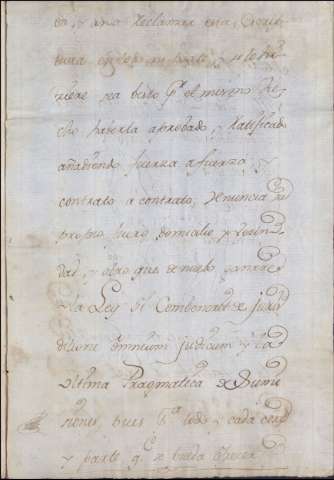 da, y a no reclamar esta Escri
tura en todo ni parte, y si lo hi
ziere sea visto p.r el mismo he
cho haberla aprobado, y ratificado
añadiendo fuerza a fuerza, y
contrato a contrato, renuncia su
propio fuero, domicilio y vecin
dad, y otro que de nuebo ganare
y la Ley Si Combenerit de juris
dictione omnium judicum y la
Ultima Pragmatica de Sumi
siones, pues p.a todo y cada cosa
y parte q.e